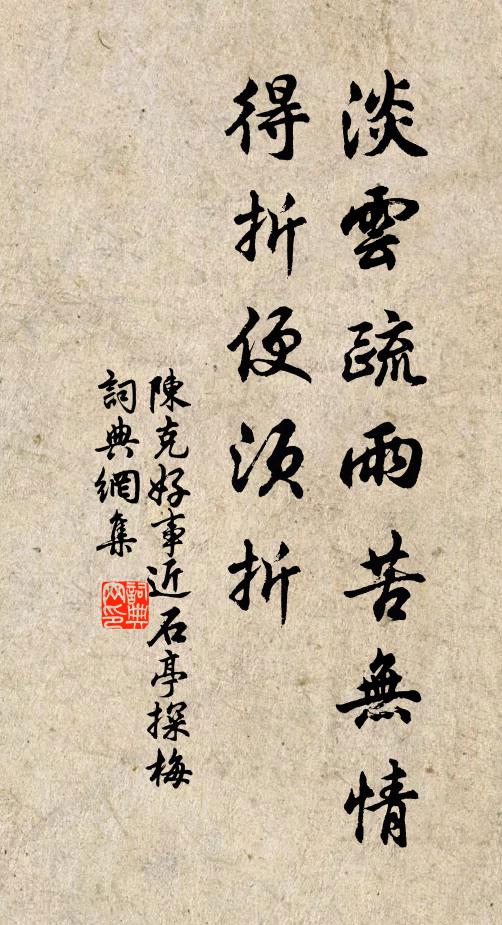 淡雲疏雨苦無情
得折便須折
陳克好事近石亭探梅
詞典網集
詞典
网印